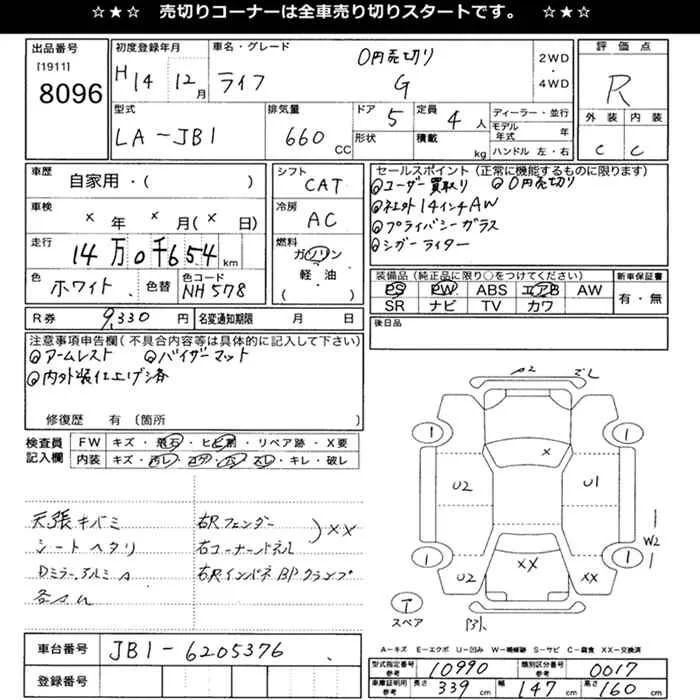 ☆★☆ 売切りコーナーは全車売り切りスタートです。 ☆★☆
出品番号
[1911]
8096
初度登録年月
H14年 12月
車名・グレード
ライフ
0円売切り
G
2WD
・
4WD
評価点
R
外装 内装
C C
型式
LA-JB1
排気量
660 CC
ドア
5
形状
定員
4人
積載
kg
ディーラー・並行
モデル年式 年
ハンドル 左・右
車歴
自家用・( )
車検
× 年 × 月(× 日)
走行
14万0千654 km
色
ホワイト
色替
色コード
NH578
シフト
CAT
冷房
AC
燃料
ガソリン
軽・油
( )
セールスポイント(正常に機能するものに限ります)
◎ユーザー買取り ◎0円売切り
◎社外14インチAW
◎プライバシーガラス
◎シガーライター
装備品(純正品に限り○をつけてください)
PS PW ABS エアB AW
SR ナビ TV カワ
新車保証書
有・無
後日品
R券 9,330 円
名変通知期限 月 日
注意事項申告欄(不具合内容等は具体的に記入して下さい)
◎アームレスト ◎バイザーマット
◎内外装仕上げ済
修復歴 有 〔箇所
検査員
記入欄
FW キズ・飛石・ヒビ割・リペア跡・X要
内装 キズ・汚レ・コゲ・穴・スレ・キレ・破レ
天張キバミ
シートヘタリ
Dミラー,アルミA
各AU
右Rフェンダー
右コーナーパネル
右Rインパネ BPクランプ
)××
A2
ズレ
1
1
×
U2
U1
W2
1
1
××
U2
××
T
スペア
A-キズ E-エクボ U-凹み W-補修跡 S-サビ C-腐食 XX-交換済
車台番号
JB1-6205376
登録番号
型式指定番号
参考
10990
類別区分番号
参考
0017
車庫証明用
参考
長さ 339 cm
幅 147 cm
高さ 160 cm